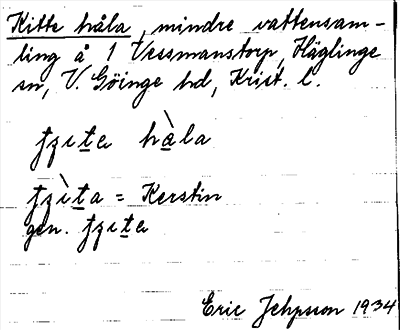 Kitte håla, mindre vattensam-
ling å 1 Vessmanstorp, Häglinge
sn, V. Göinge hd, Krist. l.
håla
= Kerstin
gen.
Eric Jehpsson 1934